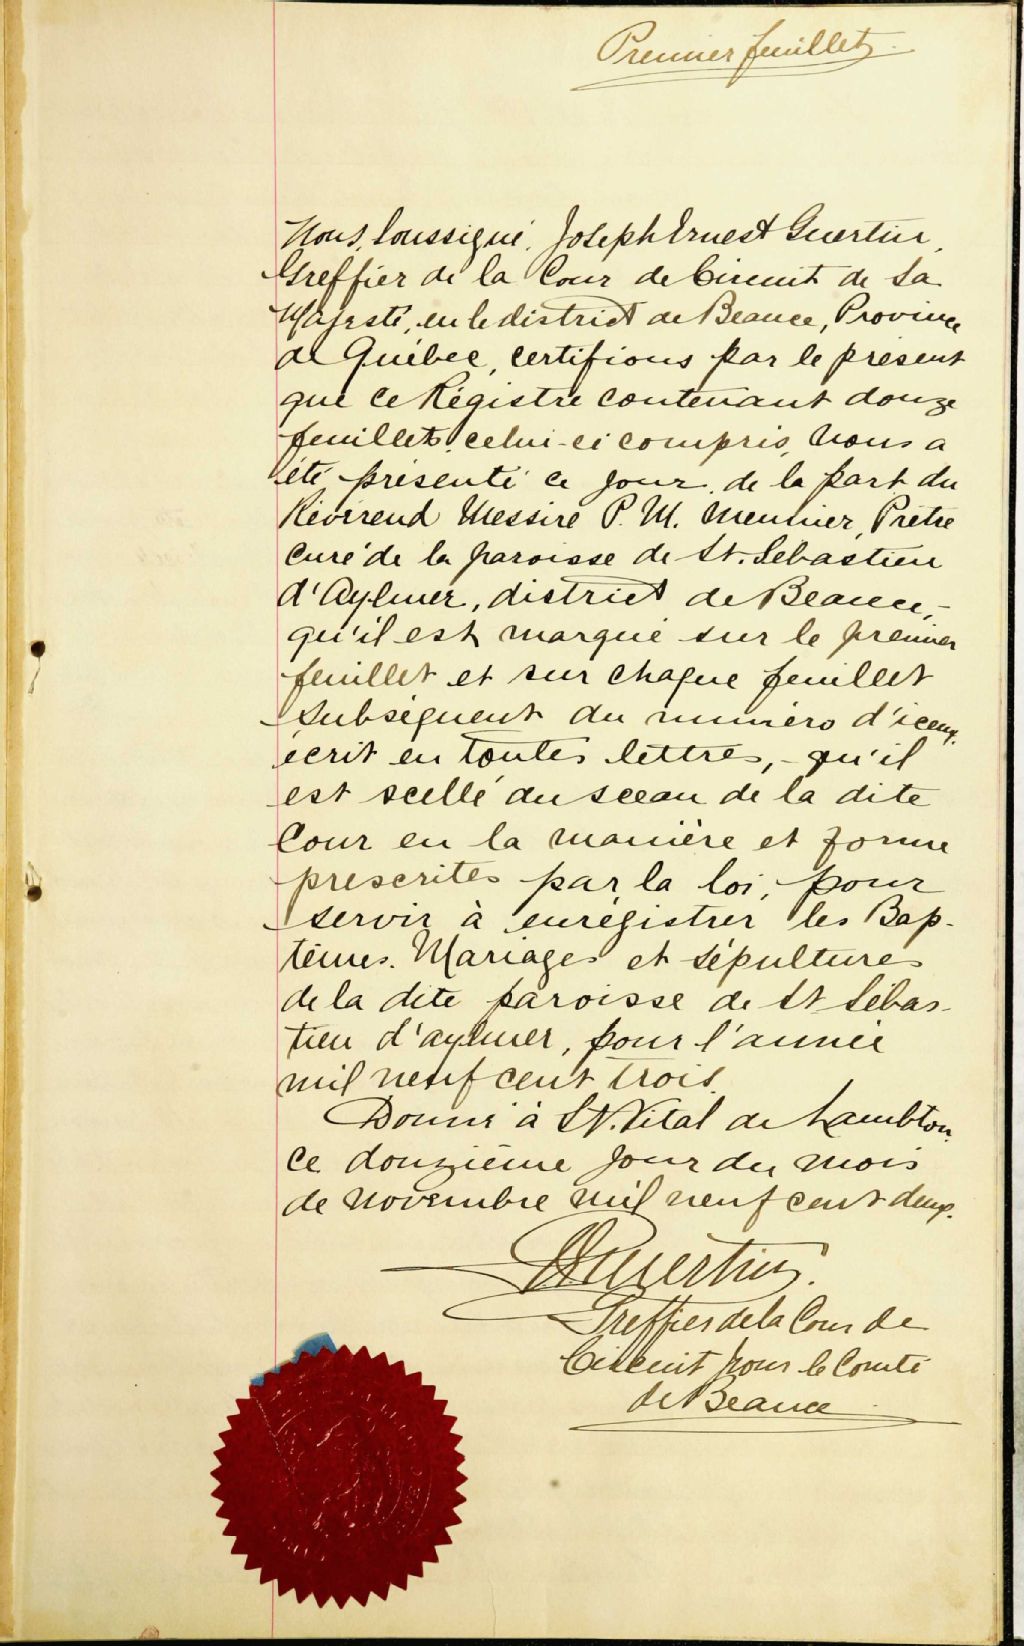 Premier feuillet.
Nous, Soussigné, Joseph Ernest Guertin,
Greffier de la Cour de Circuit de Sa
Majesté, en le district de Beauce, Province
de Québec, certifions par le présent
que ce Régistre contenant douze
feuillets, celui-ci compris, Nous a
été présenté ce jour, de la part du
Révérend Messire P. M. Meunier, Prêtre
curé de la paroisse de St. Sébastien
d'Aylmer, district de Beauce, -
qu'il est marqué sur le premier
feuillet et sur chaque feuillet
subséquent du numéro d'iceux,
écrit en toutes lettres, - qu'il
est scellé du sceau de la dite
Cour en la manière et forme
prescrites par la loi, pour
servir à enrégistrer les Bap-
têmes. Mariages et sépultures
de la dite paroisse de St Sébas-
tien d'aylmer, pour l'année
mil neuf cent trois.
Donné à St. Vital de Lambton
ce douzième jour du mois
de novembre mil neuf cent deux.
Guertin.
Greffier de la Cour de
Circuit pour le Comté
de Beauce